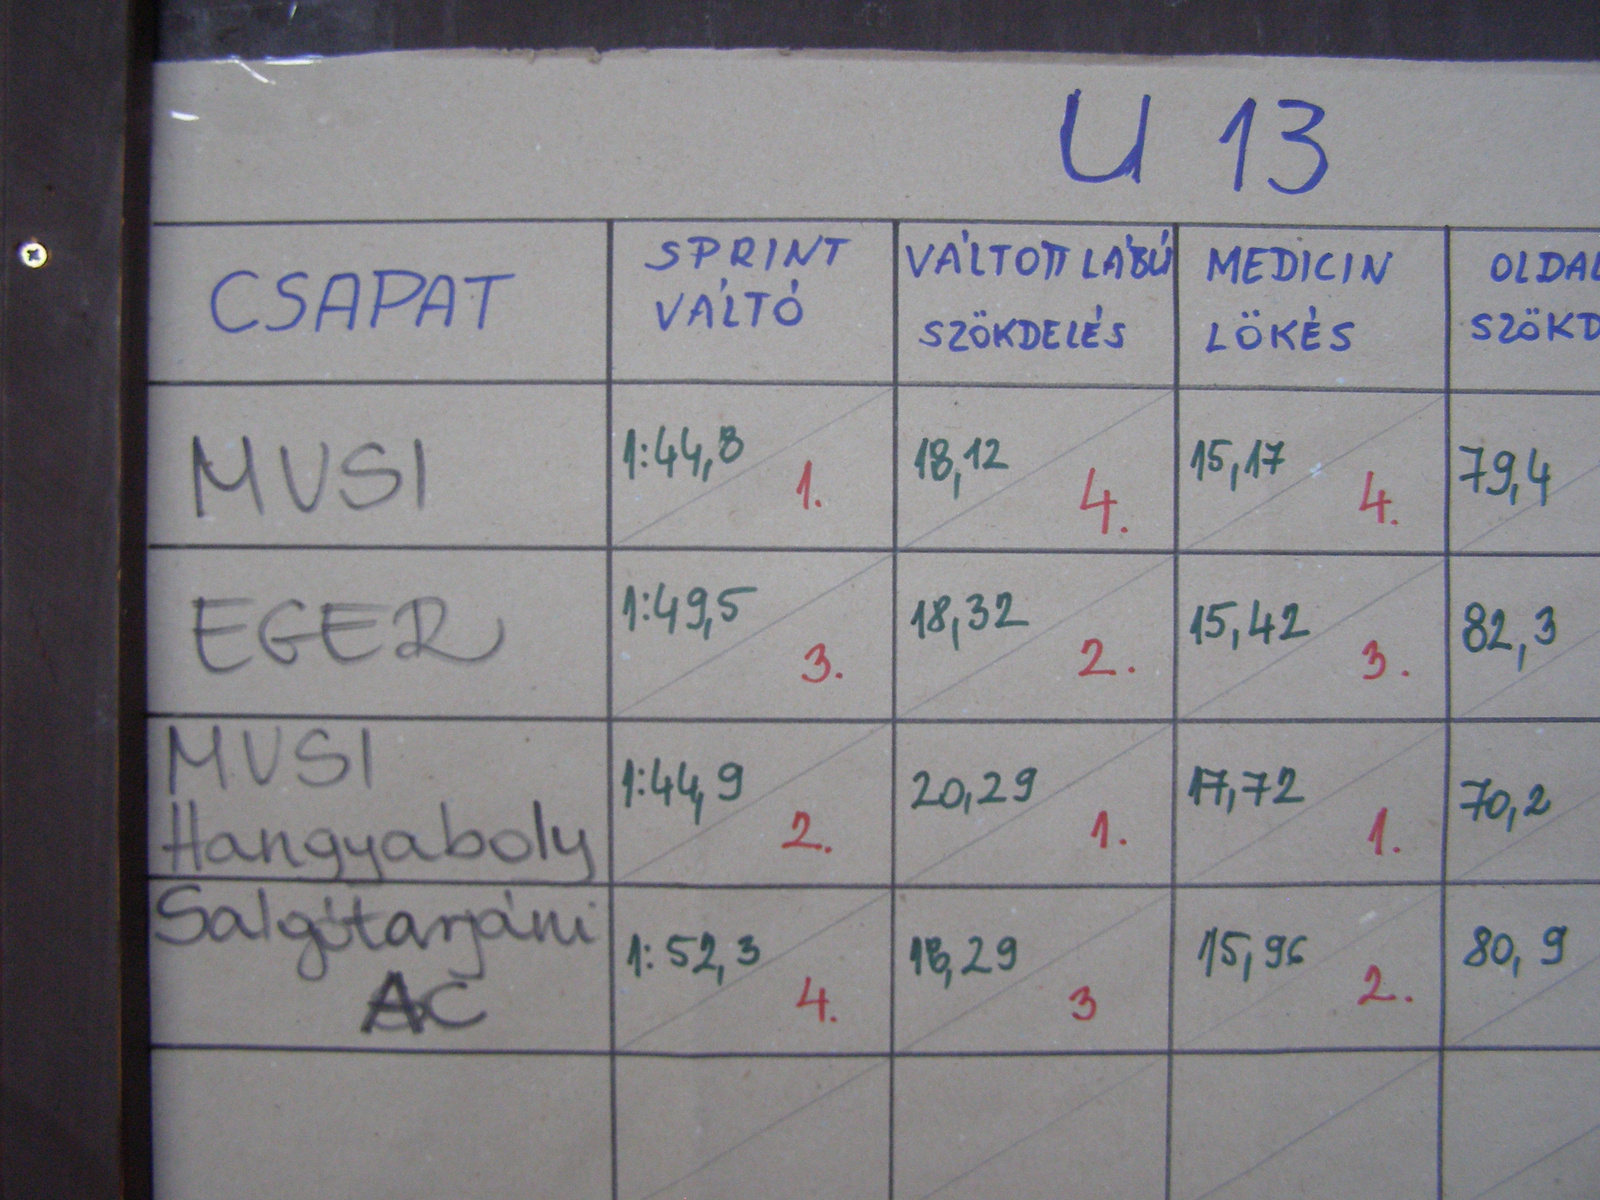 U 13
CSAPAT
SPRINT
VÁLTÓ
VÁLTOTT LÁBÚ
SZÖKDELÉS
MEDICIN
LÖKÉS
OLDAL
SZÖKD
MUSI
1:44,8
1.
18,12
4.
15,17
4.
79,4
EGER
1:49,5
3.
18,32
2.
15,42
3.
82,3
MUSI
Hangyaboly
1:44,9
2.
20,29
1.
17,72
1.
70,2
Salgótarjáni
AC
1:52,3
4.
18,29
3
15,96
2.
80,9